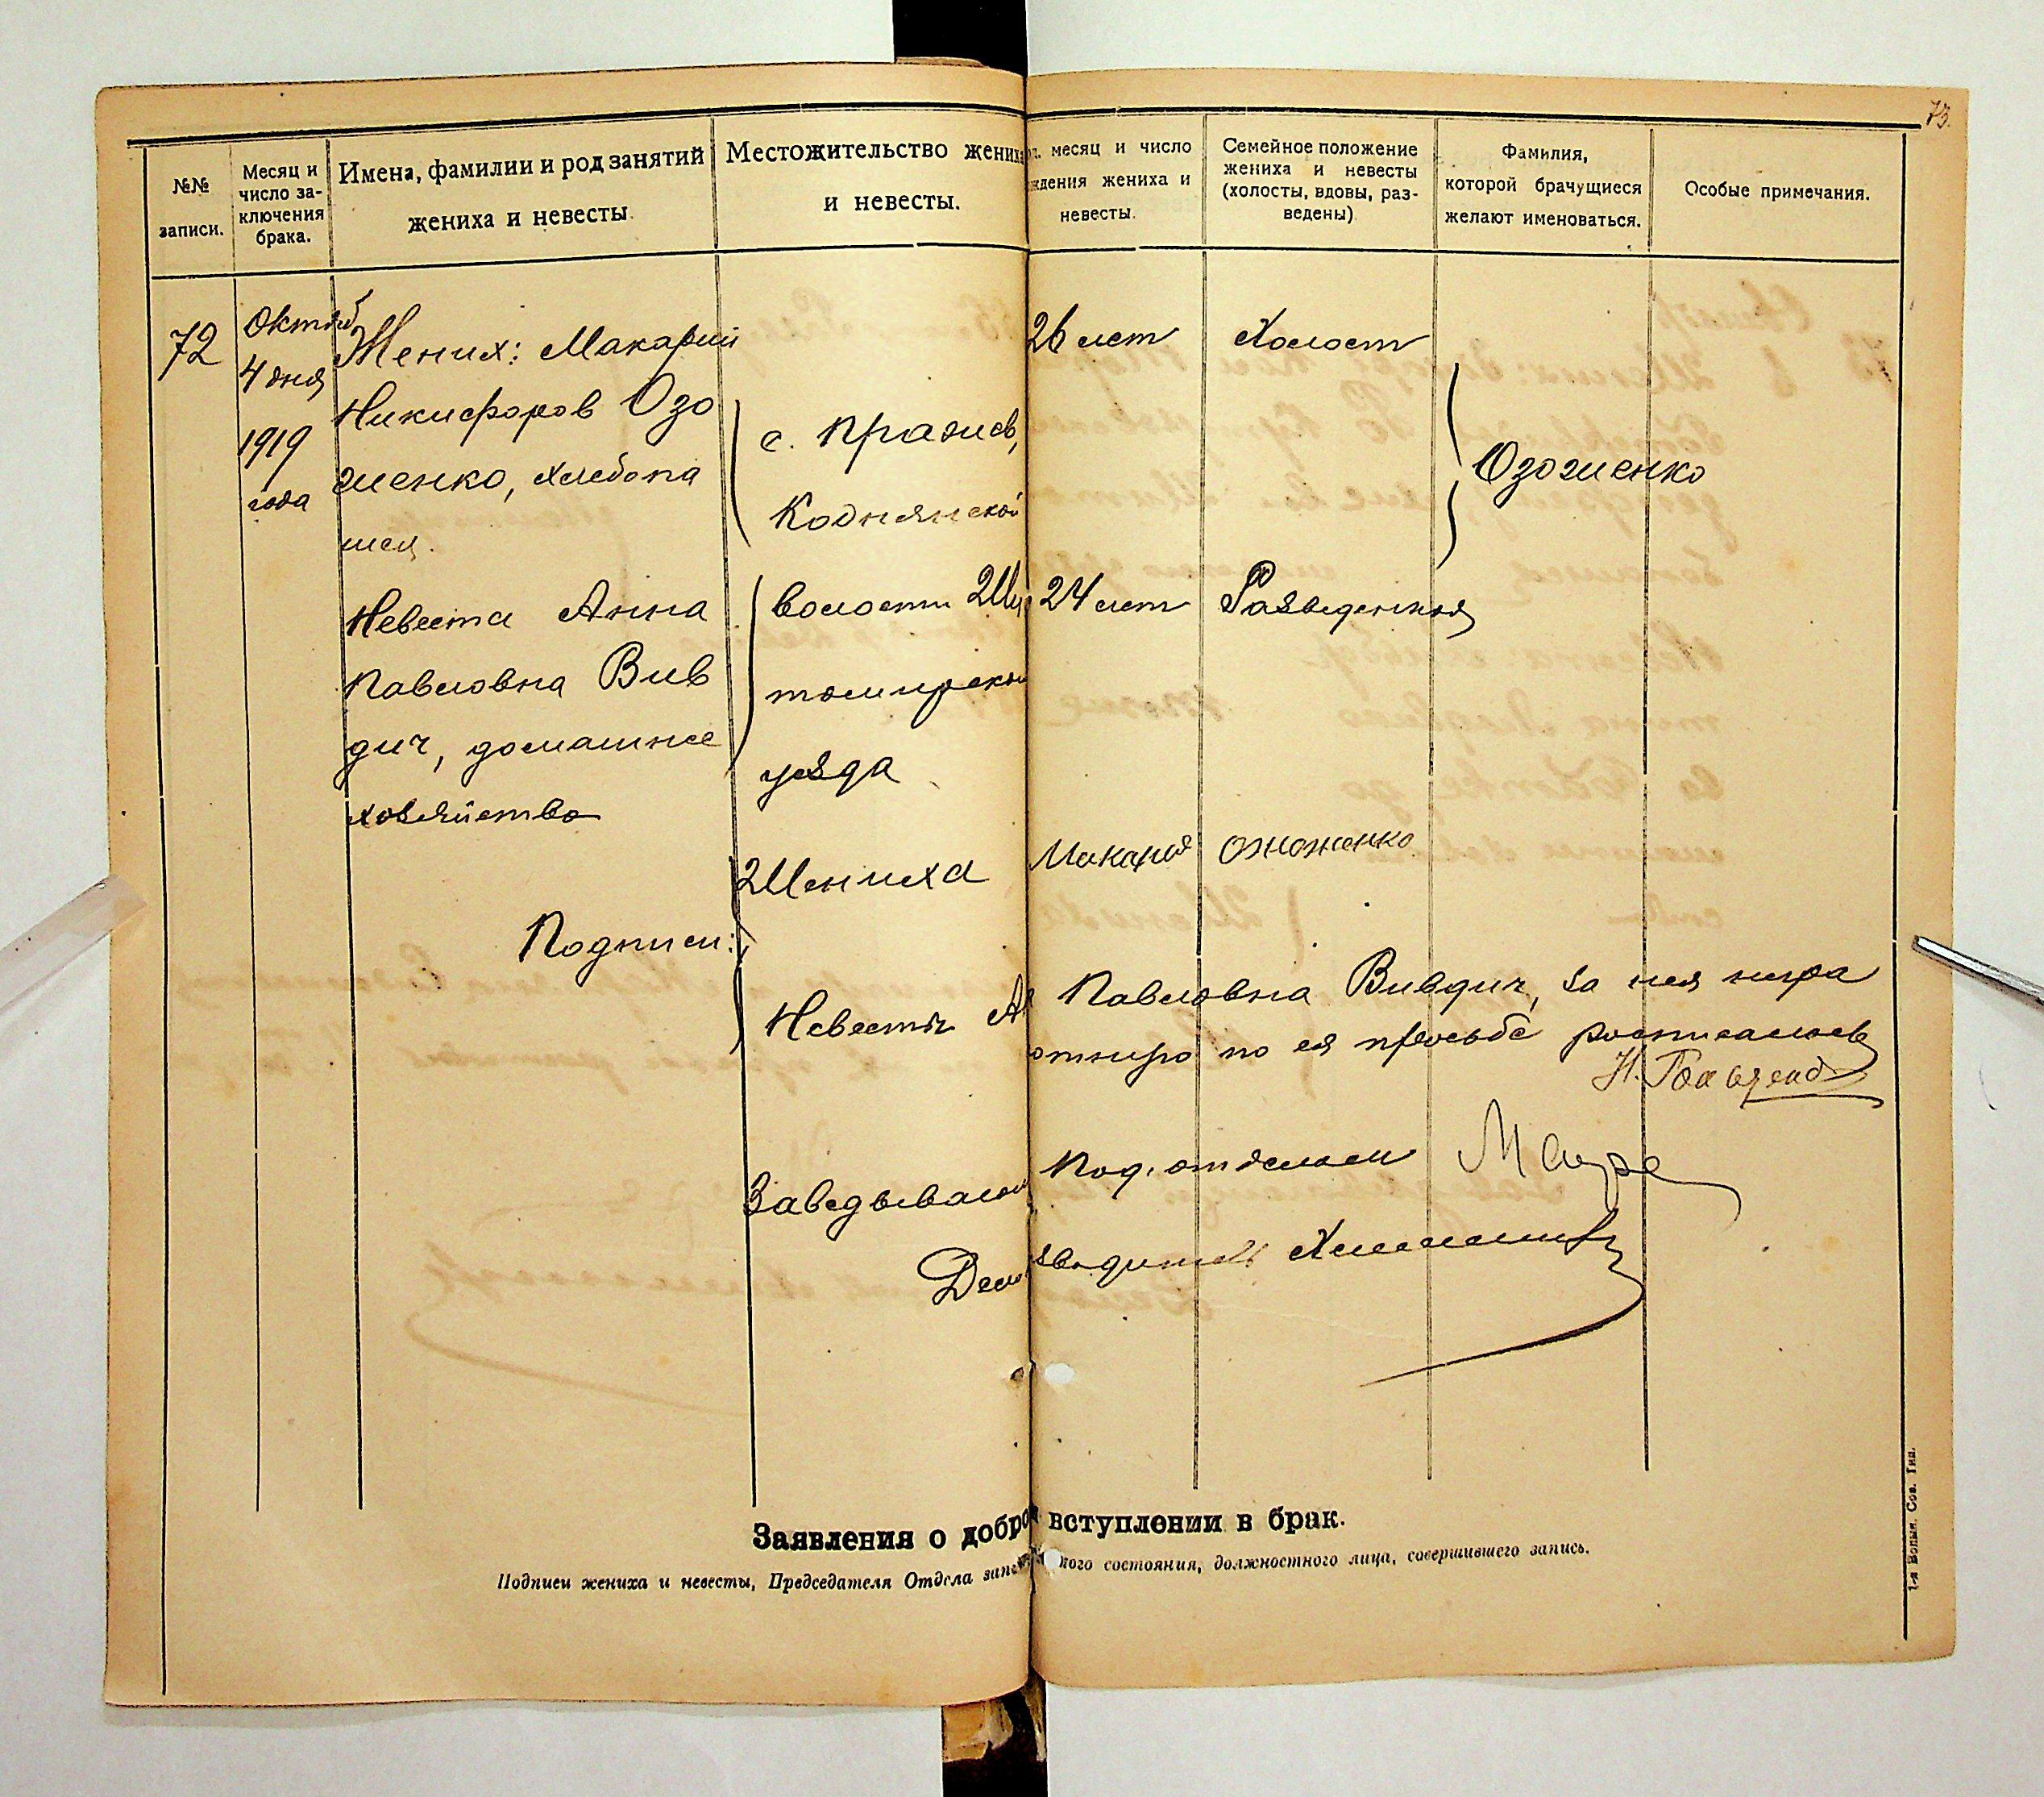 73.
№№ записи.
Месяц и число заключения брака.
Имена, фамилии и род занятий
жениха и невесты.
Местожительство жениха
и невесты.
месяц и число
ждения жениха и
невесты.
Семейное положение
жениха и невесты
(холосты, вдовы, раз-
ведены)
Фамилия,
которой брачущиеся
желают именоваться.
Особые примечания.
72
Октяб
4 дня
1919
года
Жених: Макарий
Никифоров Озо
женко, хлебопа
шец.
с. Пражев,
Коднянской
26 лет
Холост
Озоженко
Невеста Анна
Павловна Вив
дич, домашнее
хозяйство
волости Жи
томирской
уезда
24 лет
Разведенная
Подписи:
Жениха
Макарий Ожоженко
Невесты
Павловна Вивдич, за нея негра
отную по ея просьбе росписался
Заведывающ Под. отделом
Дело зводитель
Заявления о добро вступлении в брак.
Подписи жениха и невесты, Председателя Отдела запи кого состояния, должностного лица, совершившего запись.
1-я Волын. Сов. Тип.